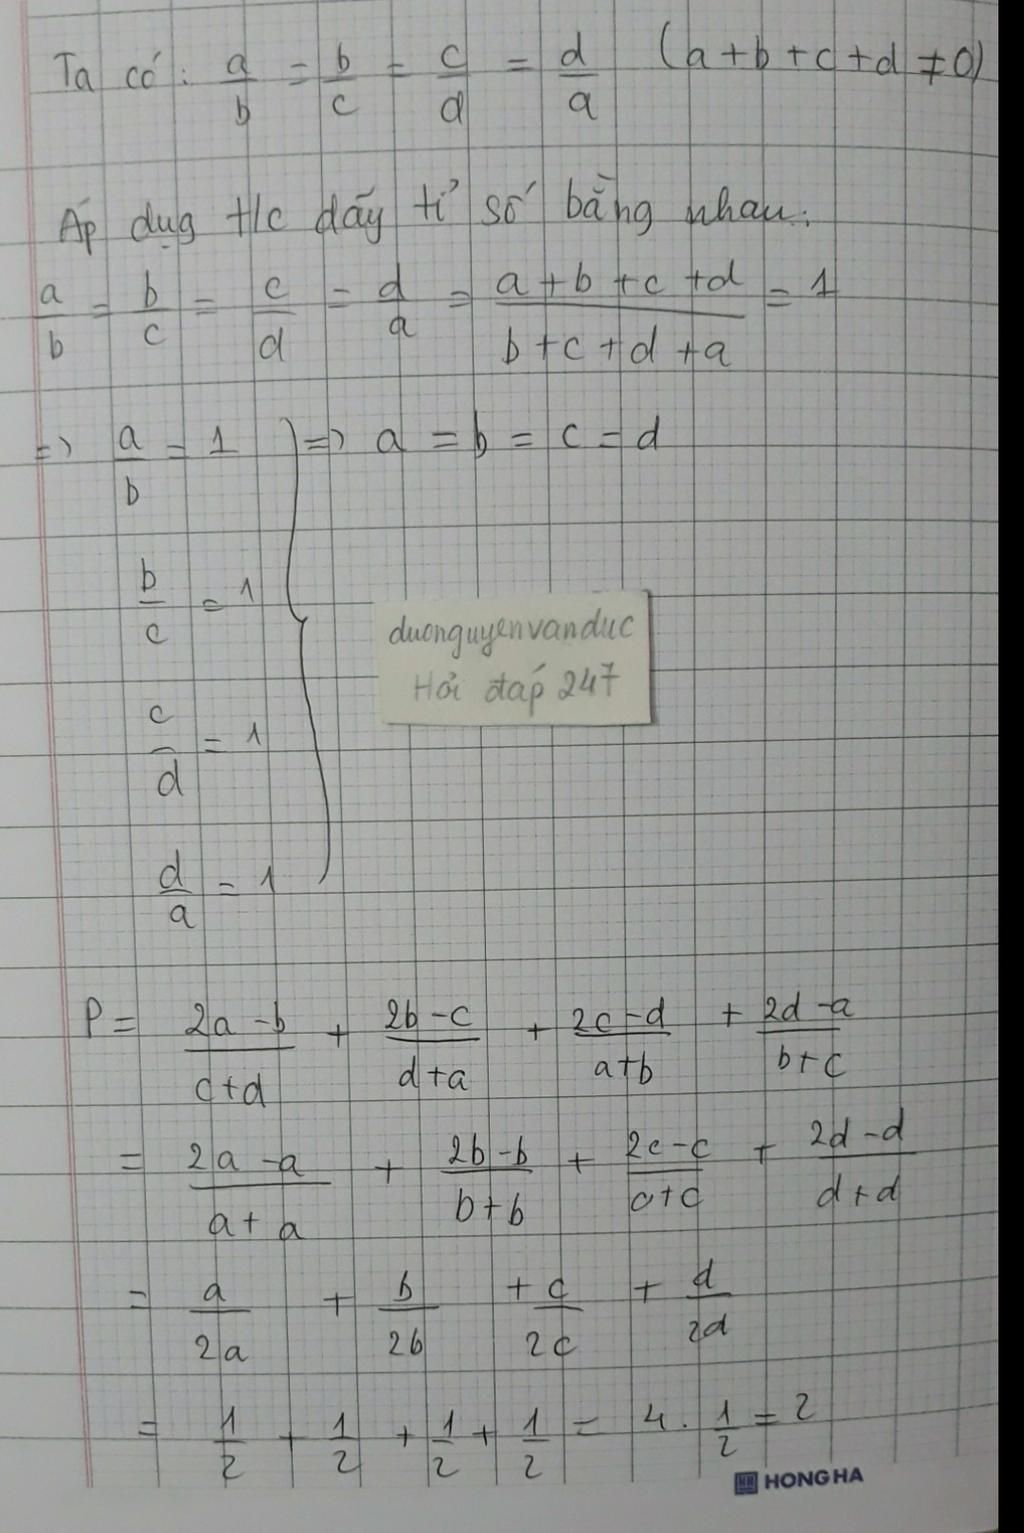 Ta có: a/b = b/c = c/d = d/a (a+b+c+d ≠ 0)
Áp dụg t/c dãy tỉ số bằng nhau:
a/b = b/c = c/d = d/a = (a+b+c+d)/(b+c+d+a) = 1
=> a/b = 1 } => a = b = c = d
b/c = 1
c/d = 1
d/a = 1
duonguyenvanduc
Hỏi đáp 247
P = (2a-b)/(c+d) + (2b-c)/(d+a) + (2c-d)/(a+b) + (2d-a)/(b+c)
= (2a-a)/(a+a) + (2b-b)/(b+b) + (2c-c)/(c+c) + (2d-d)/(d+d)
= a/2a + b/2b + c/2c + d/2d
= 1/2 + 1/2 + 1/2 + 1/2 = 4 . 1/2 = 2
HONG HA